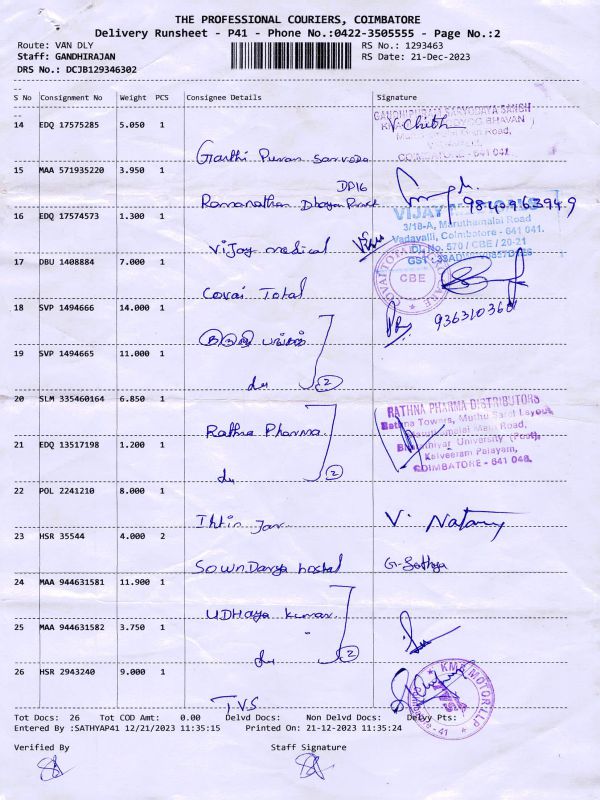 THE PROFESSIONAL COURIERS, COIMBATORE
Delivery Runsheet - P41 - Phone No.:0422-3505555 - Page No.:2
Route: VAN DLY
RS No.: 1293463
Staff: GANDHIRAJAN
RS Date: 21-Dec-2023
DRS No.: DCJB129346302
S No Consignment No Weight PCS Consignee Details Signature
14 EDQ 17575285 5.050 1
V. Chith
COIMBATORE - 641 041
15 MAA 571935220 3.950 1
DP16
9840963949
16 EDQ 17574573 1.300 1
VIJAY
3/18-A, Maruthamalai Road
Vadavalli, Coimbatore - 641 041.
DL No. 570 / CBE / 20-21
Vijay medical
17 DBU 1408884 7.000 1
CBE
Covai Total
18 SVP 1494666 14.000 1
19 SVP 1494665 11.000 1
2
20 SLM 335460164 6.850 1
RATHNA PHARMA DISTRIBUTORS
Rathna Towers, Muthu Layout
Maruthamalai Main Road,
Bharathiyar University (Post),
Kalveeram Palayam,
COIMBATORE - 641 046.
Rathna Pharma
21 EDQ 13517198 1.200 1
2
22 POL 2241210 8.000 1
V. Natary
23 HSR 35544 4.000 2
G. Sathya
hostal
24 MAA 944631581 11.900 1
UDHaya Kumar
25 MAA 944631582 3.750 1
2
26 HSR 2943240 9.000 1
KMB MOTOR LLP
TVS
Tot Docs: 26 Tot COD Amt: 0.00 Delvd Docs: Non Delvd Docs: Delvy Pts:
Entered By :SATHYAP41 12/21/2023 11:35:15 Printed On: 21-12-2023 11:35:24
Verified By Staff Signature